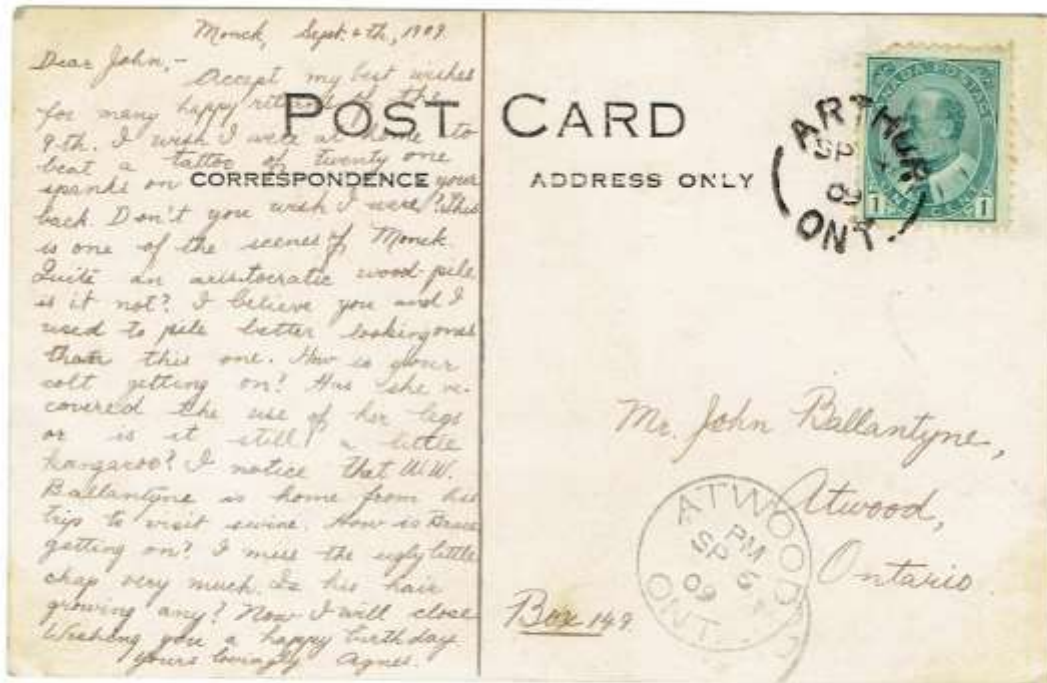 Monck, Sept. 4th, 1909.
Dear John,-
Accept my best wishes
for many happy returns of the
9th. I wish I were at home to
beat a tattoo of twenty one
spanks on your
back. Don't you wish I were? This
is one of the scenes of Monck.
Quite an aristocratic wood-pile
is it not? I believe you and I
used to pile better looking ones
than this one. How is your
colt getting on? Has she re-
covered the use of her legs
or is it still a little
kangaroo? I notice that W.W.
Ballantyne is home from his
trip to visit swine. How is Bruce
getting on? I miss the ugly little
chap very much. Is his hair
growing any? Now I will close
Wishing you a happy birthday
yours lovingly Agnes.
POST CARD
CORRESPONDENCE
ADDRESS ONLY
CANADA POSTAGE
1 ONE CENT 1
ARTHUR
SP
09
ONT.
Mr. John Ballantyne,
Atwood,
Ontario
Box 149.
ATWOOD
PM
SP 6
09
ONT.